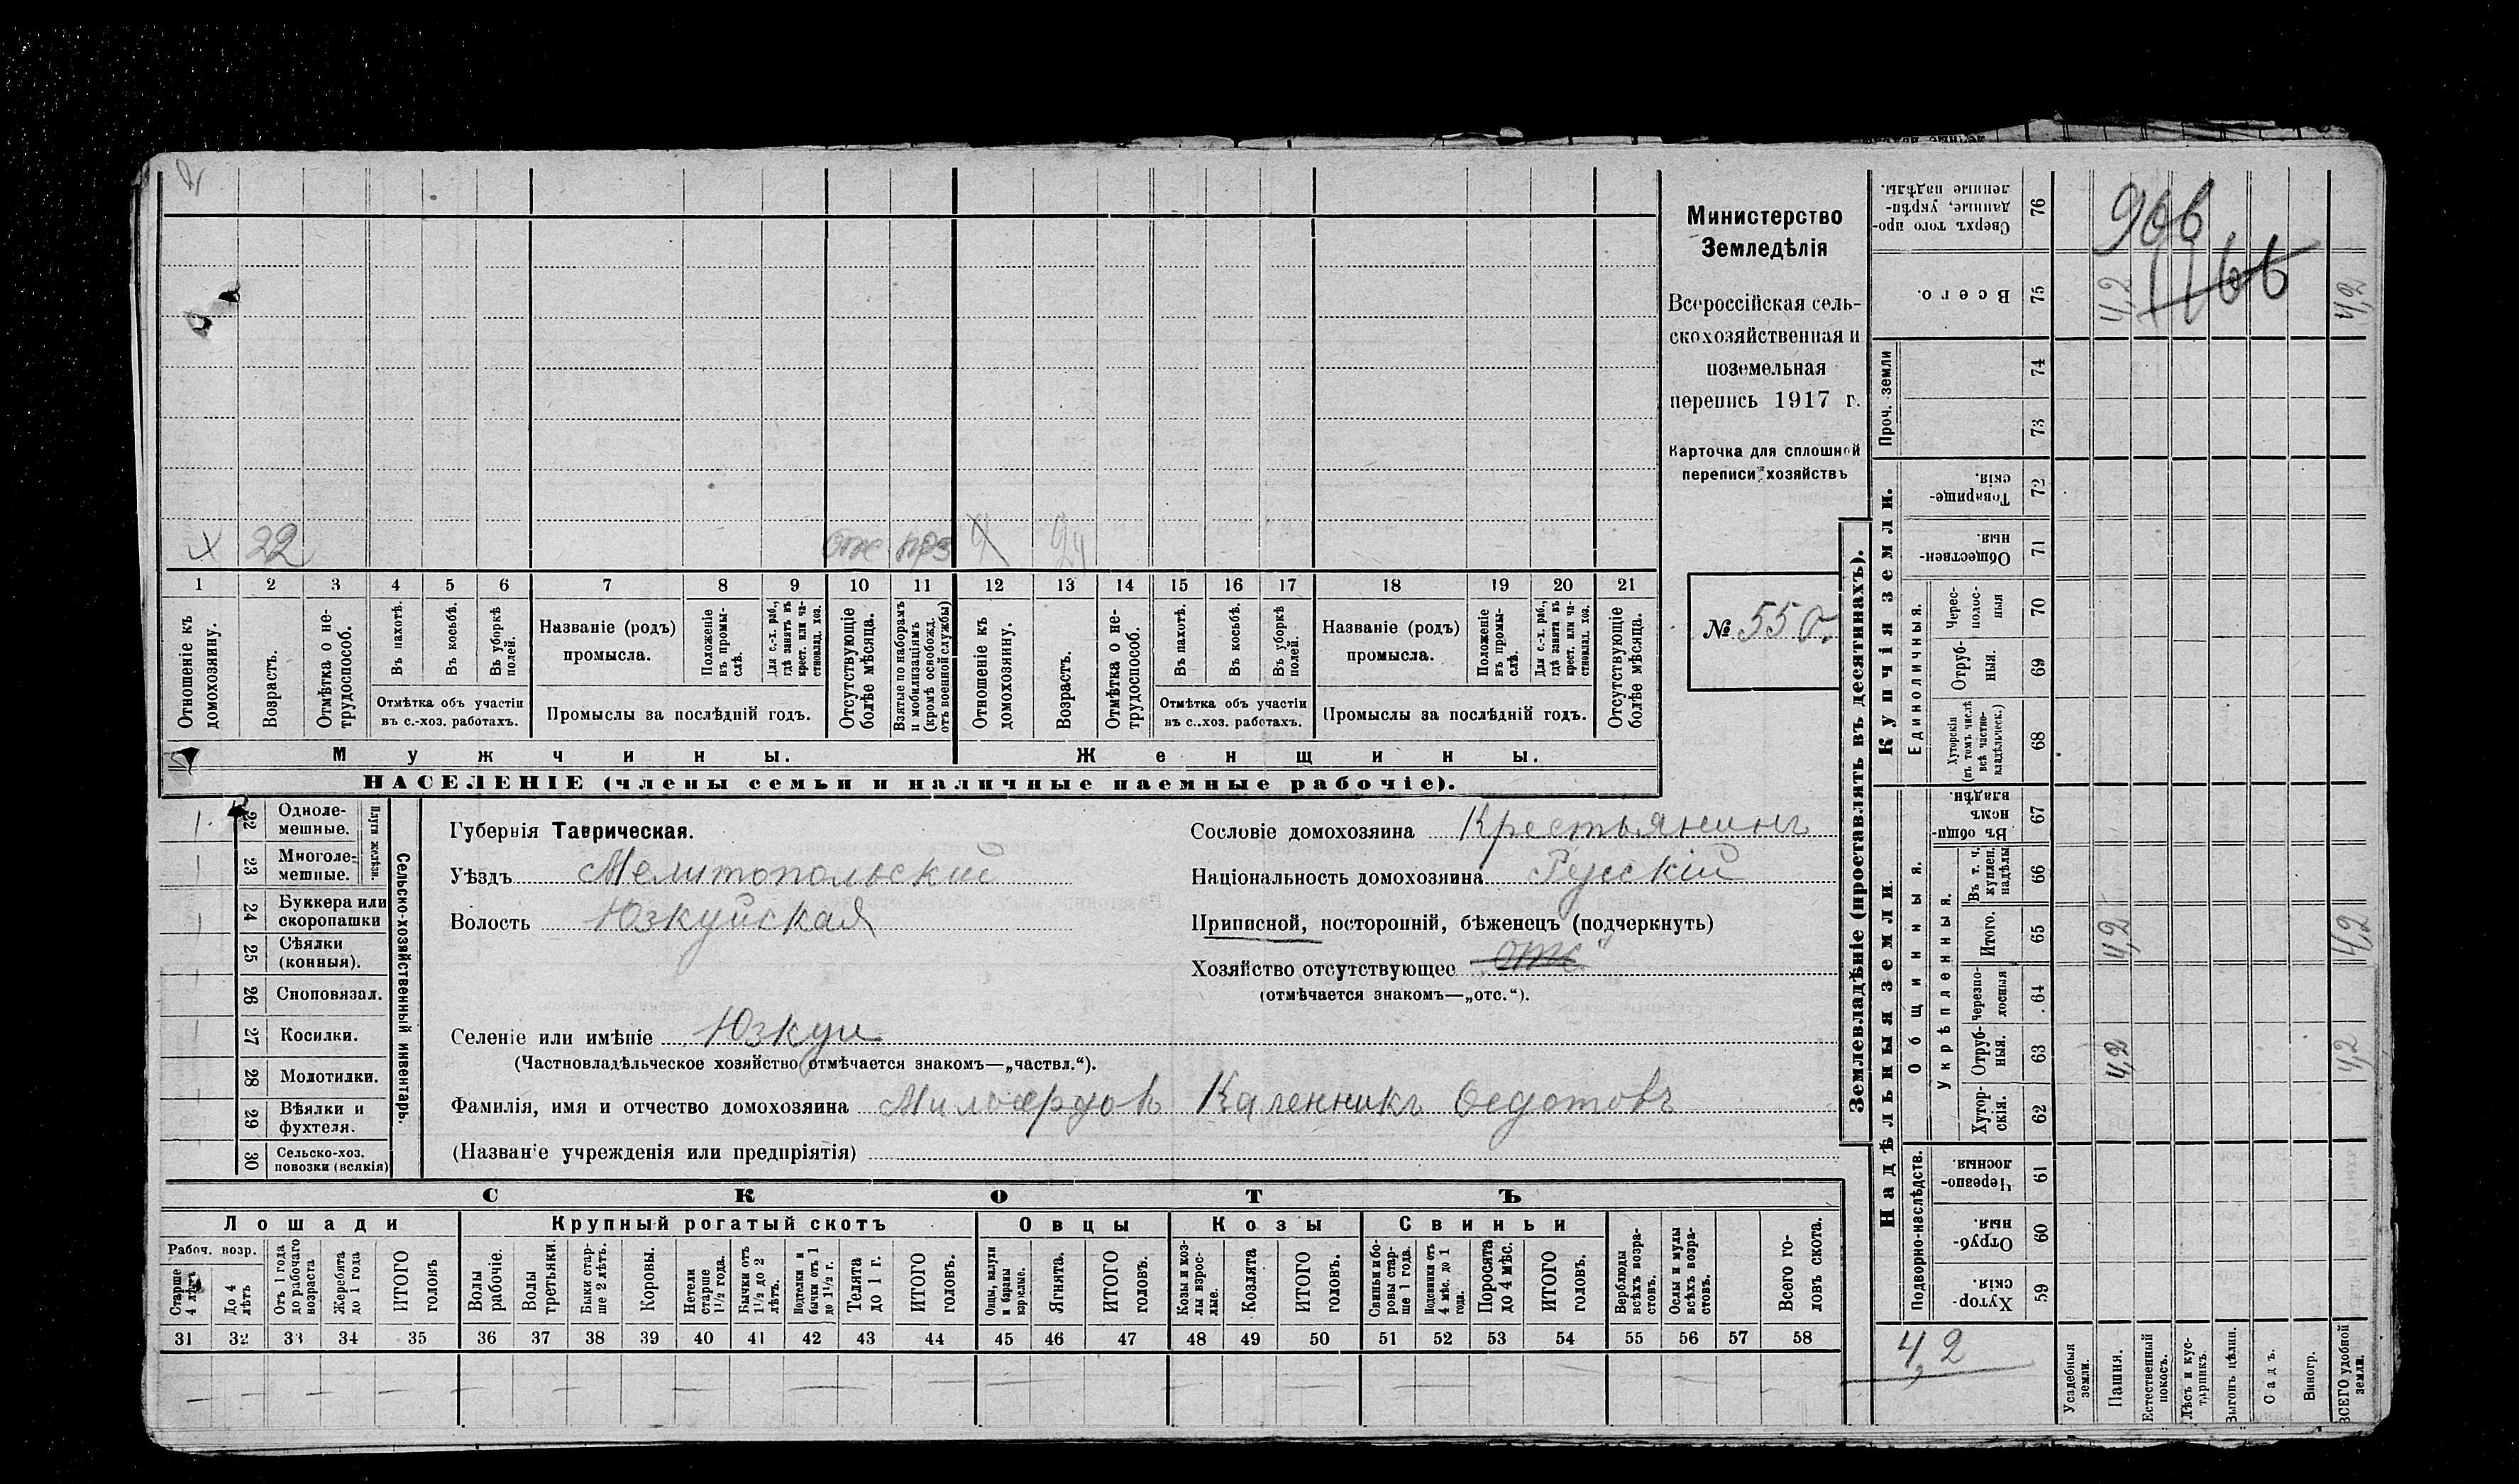 966
1166
Министерство
Земледѣлія
Всероссійская сель-
скохозяйственная и
поземельная
перепись 1917 г.
Карточка для сплошной
переписи хозяйствъ
№ 550.
х 22 отс 24
1 2 3 4 5 6 7 8 9 10 11 12 13 14 15 16 17 18 19 20 21
Отношеніе къ домохозяину.
Возрастъ.
Отмѣтка о не-трудоспособ.
Въ пахотѣ.
Въ косьбѣ.
Въ уборкѣ полей.
Отмѣтка объ участіи
въ с.-хоз. работахъ.
Названіе (родъ)
промысла.
Положеніе въ промы-слѣ.
Для с.-х. раб., гдѣ занятъ въ крест. или ча-стновлад. хоз.
Промыслы за послѣдній годъ.
Отсутствующіе болѣе мѣсяца.
Взятые по наборамъ и мобилизаціямъ (кромѣ освобожд. отъ военной службы)
Отношеніе къ домохозяину.
Возрастъ.
Отмѣтка о не-трудоспособ.
Въ пахотѣ.
Въ косьбѣ.
Въ уборкѣ полей.
Отмѣтка объ участіи
въ с..-хоз. работахъ.
Названіе (родъ)
промысла.
Положеніе въ промы-слѣ.
Для с.-х. раб., гдѣ занята въ крест. или ча-стновлад. хоз.
Промыслы за послѣдній годъ.
Отсутствующіе болѣе мѣсяца.
Мужчины.
Женщины.
НАСЕЛЕНІЕ (члены семьи и наличные наемные рабочіе).
Сельско-хозяйственный инвентарь.
Плуги желѣзн.
22 Одноле-мешные.
23 Многоле-мешные.
24 Буккера или скоропашки
25 Сѣялки (конныя).
26 Сноповязал.
27 Косилки.
28 Молотилки.
29 Вѣялки и фухтеля.
30 Сельско-хоз. повозки (всякія)
Губернія Таврическая.
Уѣздъ Мелитопольскій
Волость Юзкуйская
Селеніе или имѣніе Юзкуи
(Частновладѣльческое хозяйство отмѣчается знакомъ—„частвл.“).
Фамилія, имя и отчество домохозяина Милосердовъ Каленникъ Ѳедотовъ
(Названіе учрежденія или предпріятія)
Сословіе домохозяина Крестьянинъ
Національность домохозяина Русскій
Приписной, посторонній, бѣженецъ (подчеркнуть)
Хозяйство отсутствующее „отс“
(отмѣчается знакомъ—„отс.“).
СКОТЪ
Лошади
Крупный рогатый скотъ
Овцы
Козы
Свиньи
Рабоч. возр.
Старше 4 лѣтъ
До 4 лѣтъ
Отъ 1 года до рабочаго возраста
Жеребята до 1 года
ИТОГО головъ
Волы рабочіе.
Волы третьяки.
Быки стар-ше 2 лѣтъ.
Коровы.
Нетели старше 1½ года.
Бычки отъ 1½ до 2 лѣтъ.
Подтелки и бычки отъ 1 до 1½ г.
Телята до 1 г.
ИТОГО головъ.
Овцы, валухи и бараны взрослые.
Ягнята.
ИТОГО головъ.
Козы и коз-лы взрос-лые.
Козлята
ИТОГО головъ.
Свиньи и бо-ровы стар-ше 1 года.
Подсвинки отъ 4 мѣс. до 1 года.
Поросята до 4 мѣс.
ИТОГО головъ.
Верблюды всѣхъ возра-стовъ.
Ослы и мулы всѣхъ возра-стовъ.
Всего го-ловъ скота.
31 32 33 34 35 36 37 38 39 40 41 42 43 44 45 46 47 48 49 50 51 52 53 54 55 56 57 58
Землевладѣніе (проставлять въ десятинахъ).
Надѣльныя земли.
Купчія земли.
Подворно-наслѣдств.
Общинныя.
Укрѣпленныя.
Единоличныя.
Проч. земли
Сверхъ того про-данные, укрѣп-ленные надѣлы. 76
Всего. 75 4,2 4,2
74
73
Товарище-скія. 72
Обществен-ныя. 71
Черес-полос-ныя 70
Отруб-ныя. 69
Хуторскія (въ томъ числѣ всѣ частно-владѣльческ.) 68
Въ общин-номъ владѣн. 67
Въ т. ч. куплен. надѣлы 66
Итого. 65 4,2 4,2
Черезпо-лосныя 64
Отруб-ныя. 63 4,2 4,2
Хутор-скія. 62
Черезпо-лосныя. 61
Отруб-ныя. 60
Хутор-скія. 59
4,2
Усадебныя земли.
Пашня.
Естественный покосъ.
Лѣсъ и кус-тарникъ.
Выгонъ цѣлин.
Садъ.
Виногр.
ВСЕГО удобной земли.